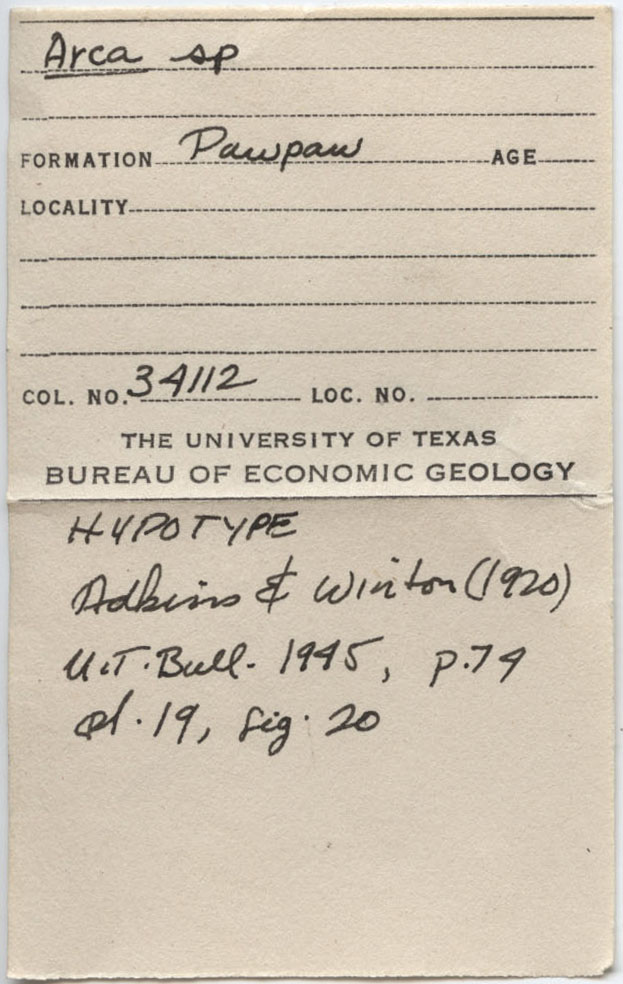 Arca sp
FORMATION Pawpaw AGE
LOCALITY
COL. NO. 34112 LOC. NO.
THE UNIVERSITY OF TEXAS
BUREAU OF ECONOMIC GEOLOGY
HYPOTYPE
Adkins & Winton (1920)
U.T. Bull. 1945, p. 74
pl. 19, fig. 20